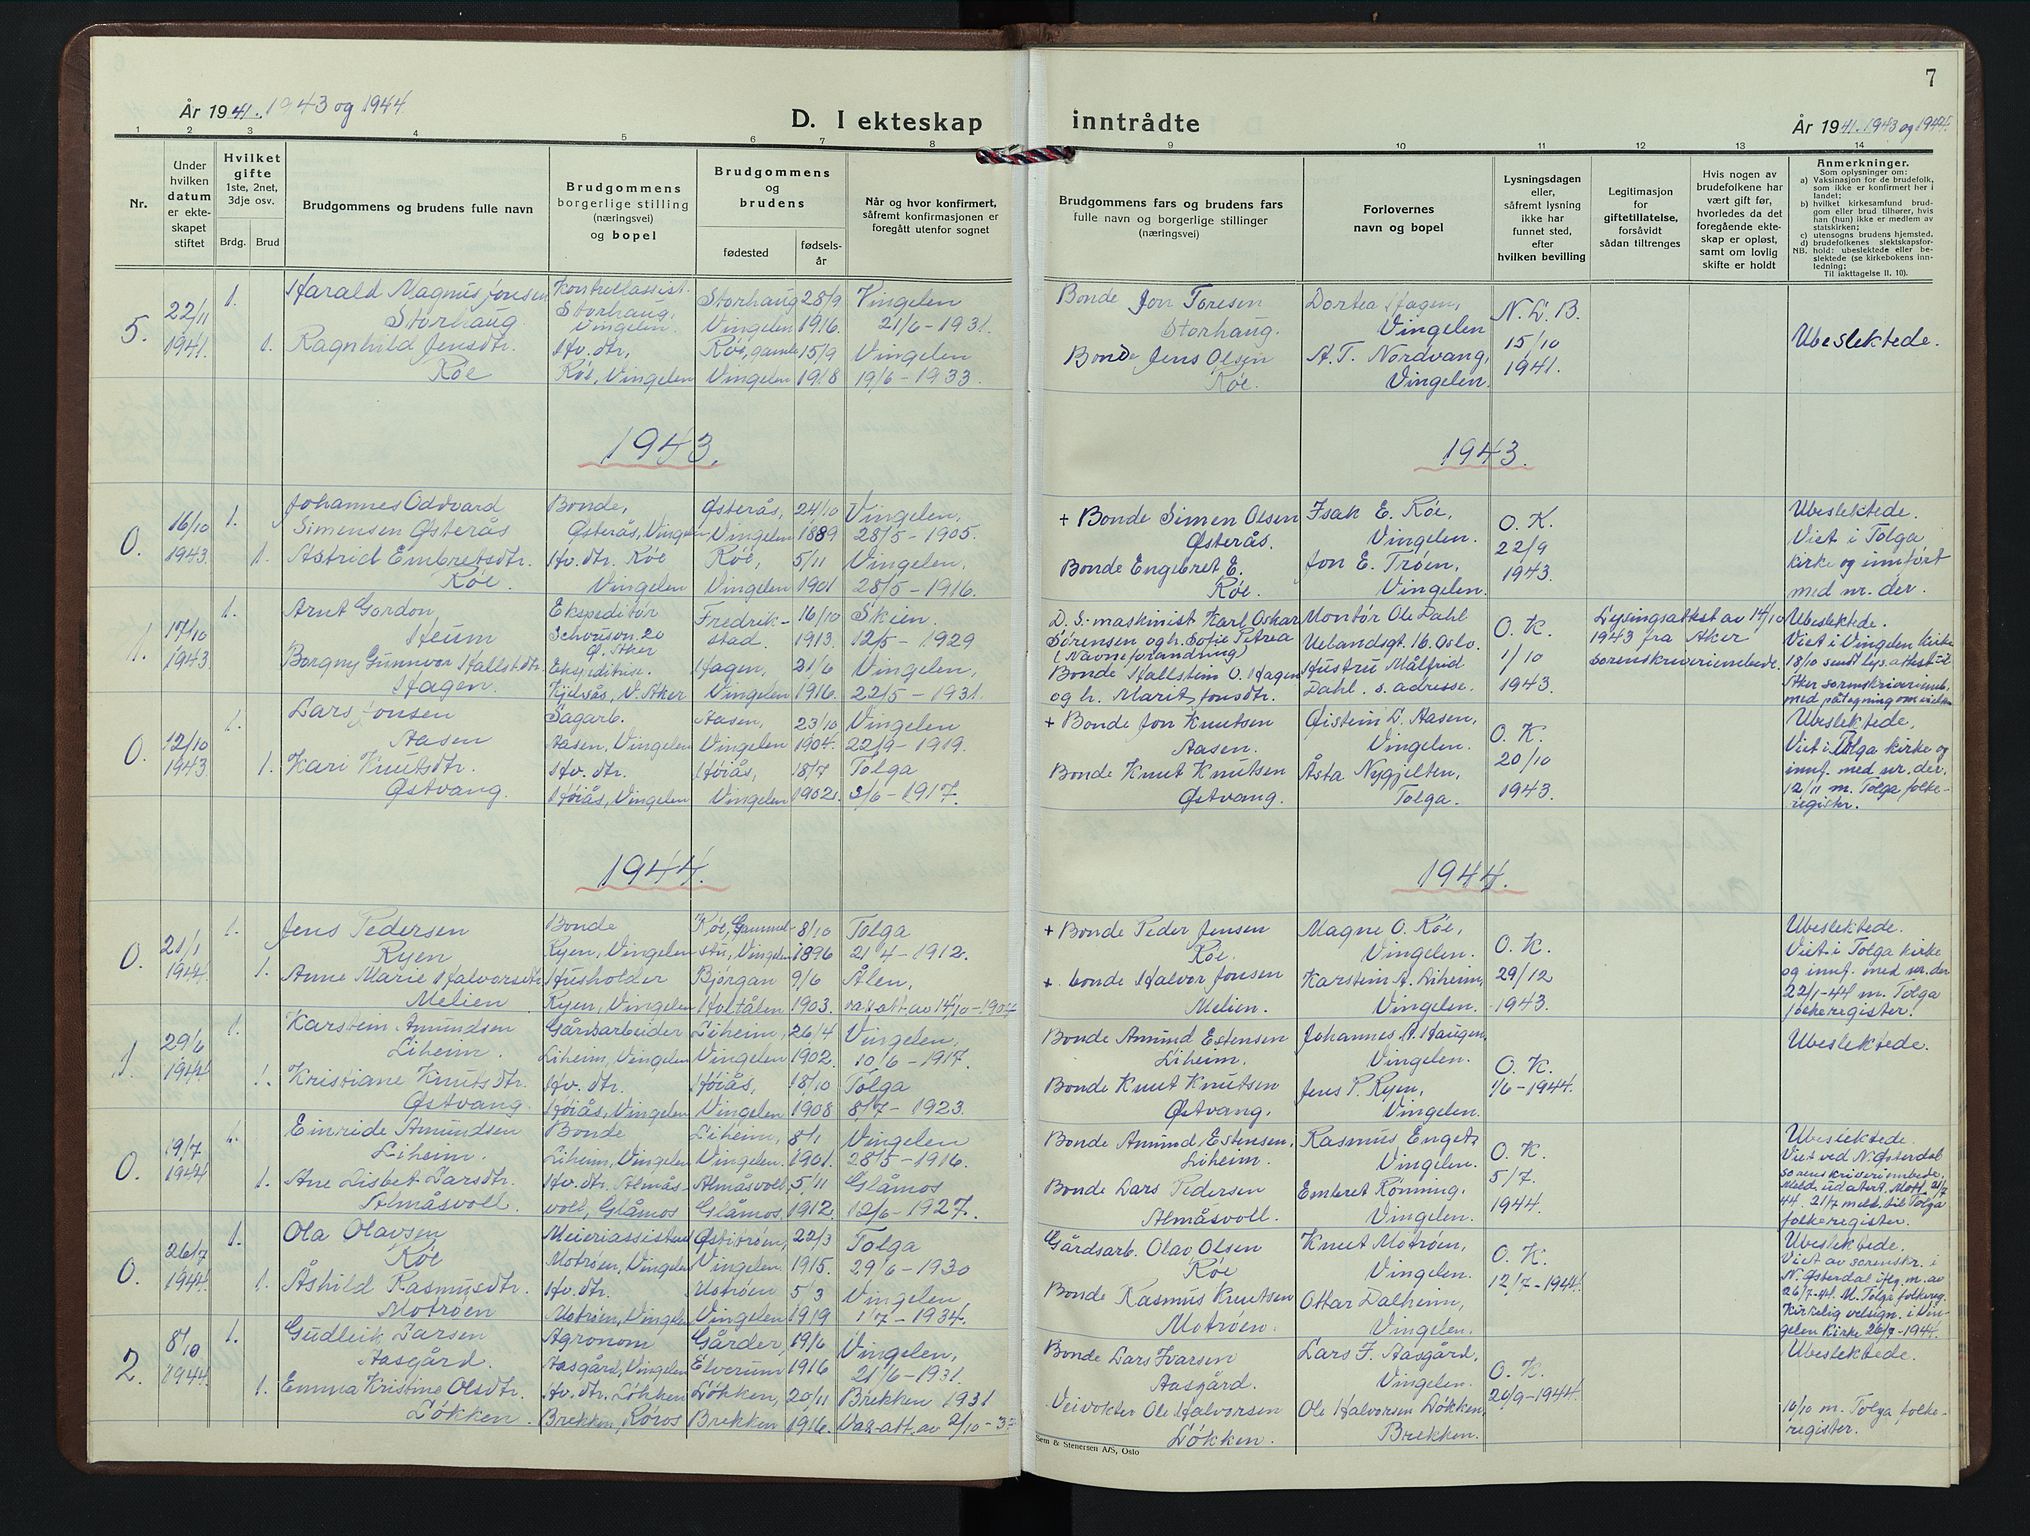 År 1941. 1943 og 1944
D. I ekteskap
1 2 3 4 5 6 7 8
Nr.
Under hvilken datum er ekteskapet stiftet
Hvilket gifte 1ste, 2net, 3dje osv.
Brdg. Brud
Brudgommens og brudens fulle navn
Brudgommens borgerlige stilling (næringsvei) og bopel
Brudgommens og brudens
fødested
fødselsår
Når og hvor konfirmert, såfremt konfirmasjonen er foregått utenfor sognet
5. 22/11 1941.
1. Harald Magnus Jonsen Kontrollassist. Storhaug 28/9 Vingelen
Storhaug Storhaug, Vingelen. Vingelen 1916. 21/6 - 1931.
1. Ragnhild Jensdtr. Hv. dtr, Røe, gamle 15/9 Vingelen
Røe Røe, Vingelen Vingelen 1918 19/6 - 1933.
1943.
0. 16/10 1943.
1. Johannes Oddvard Bonde, Østerås, 24/10 Vingelen,
Simensen Østerås Østerås, Vingelen Vingelen 1889 28/5 - 1905.
1. Astrid Embretsdtr. Hv. dtr. Røe Røe, 5/11 Vingelen,
Røe Vingelen Vingelen 1901 28/5 - 1916.
1. 17/10 1943.
1. Arnt Gordon Ekspeditør Fredrik- 16/10 Skien.
Heum Schouson. 20 Ø. Aker stad. 1913. 12/5 - 1929
Borgny Gunnvor Hallstdtr. Ekspeditrise. Hagen, 21/6 Vingelen
Hagen. Kjelsås, V. Aker Vingelen 1916. 22/5 - 1931.
0. 12/10 1943
1. Lars Jonsen Sagarb. Aasen, 23/10 Vingelen
Aasen Aasen, Vingelen Vingelen 1904. 22/9 - 1919.
1. Kari Knutsdtr. Hv. dtr. Høiås, 18/7 Tolga
Østvang. Høiås, Vingelen Vingelen 1902. 3/6 - 1917.
1944.
0. 21/1 1944.
1. Jens Pedersen Bonde Røe, Gammel- 8/10 Tolga
Ryen Ryen, Vingelen stu, Vingelen 1896 21/4 - 1912.
1. Anne Marie Halvorsdtr. Husholder Bjørgan 9/6 Ålen,
Melien Ryen, Vingelen Holtålen 1903. vax.att. av 14/10 - 1904
1. 29/6 1944.
1. Karstein Amundsen Gårdsarbeider Liheim, 26/4 Vingelen,
Liheim. Liheim, Vingelen Vingelen 1902. 10/6 - 1917.
1. Kristiane Knutsdtr. Hv. dtr. Høiås, 18/10 Tolga
Østvang. Høiås, Vingelen Vingelen 1908 8/7 - 1923.
0. 19/7 1944
1. Einride Amundsen Bonde Liheim, 8/1 Vingelen
Liheim. Liheim, Vingelen Vingelen. 1901. 28/5 - 1916.
1. Ane Lisbet Larsdtr. Hv. dtr. Almås- Almåsvoll, 5/11 Glåmos
Almåsvoll. voll, Glåmos Glåmos 1912. 12/6 - 1927.
0. 26/7 1944.
1. Ola Olavsen Meieriassistent Østitrøen, 22/3 Tolga
Røe Motrøen, Vingelen Vingelen. 1915. 29/6 - 1930
1. Åshild Rasmusdtr. Hv. dtr. Motrøen 5/3 Vingelen
Motrøen Motrøen, Vingelen Vingelen 1919 1/7 - 1934.
2. 8/10 1944.
1. Gudleik Larsen Agronom Gårder, 19/6 Vingelen,
Aasgård. Aasgård, Vingelen Elverum 1916 21/6 - 1931.
1. Emma Kristine Olsdtr. Hv. dtr. Løkken Løkken, 20/11 Brekken 1931
Løkken. Brekken, Røros Brekken 1916. Vax-att. av 2/10 - 37
7
inntrådte
År 1941. 1943 og 1944.
9 10 11 12 13 14
Brudgommens fars og brudens fars fulle navn og borgerlige stillinger (næringsvei)
Forlovernes navn og bopel
Lysningsdagen eller, såfremt lysning ikke har funnet sted, efter hvilken bevilling
Legitimasjon for giftetillatelse, forsåvidt sådan tiltrenges
Hvis nogen av brudefolkene har vært gift før, hvorledes da det foregående ekteskap er opløst, samt om lovlig skifte er holdt
Anmerkninger.
Som oplysninger om:
a) Vaksinasjon for de brudefolk, som ikke er konfirmert her i landet;
b) hvilket kirkesamfund brudgom eller brud tilhører, hvis han (hun) ikke er medlem av statskirken;
c) utensogns brudens hjemsted.
d) brudefolkenes slektskapsforhold: ubeslektede eller beslektede (se kirkebokens innledning;
NB.
Til iakttagelse II. 10).
Bonde Jon Toresen Dortea Hagen, N. L. B.
Storhaug. Vingelen 15/10
Bonde Jens Olsen A. T. Nordvang, 1941. Ubeslektede.
Røe. Vingelen.
1943.
+ Bonde Simen Olsen Isak E. Røe, O. K. Ubeslektede.
Østerås. Vingelen. 22/9 Viet i Tolga
Bonde Engebret E. Jon E. Trøen, 1943. kirke og innført
Røe. Vingelen. med nr. der.
D. S.-maskinist Karl Oskar Montør Ole Dahl Lysingsattest av 14/10 Ubeslektede.
Sørensen og h. Sofie Petrea Uelandsgt. 16. Oslo. O. K. 1943 fra Aker Viet i Vingelen kirke
(Navneforandring) 1/10 sorenskriverembede.
Bonde Hallstein O. Hagen Hustru Målfrid 1943. 18/10 sendt lys.attest til
og h. Marit Jonsdtr. Dahl. s. adresse. Aker sorenskriveremb. med påtegning om vielsen
+ Bonde Jon Knutsen Øistein L. Aasen, O. K. Ubeslektede.
Aasen. Vingelen. 20/10 Viet i Tolga kirke og
Bonde Knut Knutsen Åsta Nygjelten, 1943. innf. med nr. der.
Østvang. Tolga. 12/11 m. Tolga folke-
register.
1944.
+ Bonde Peder Jensen Magne O. Røe, O. K. Ubeslektede.
Røe. Vingelen. Viet i Tolga kirke
+ bonde Halvor Jonsen Karstein A. Liheim, 29/12 og innf. med nr. der
Melien. Vingelen. 1943. 22/1-44 m. Tolga
folkeregister.
Bonde Amund Estensen Johannes A. Haugen, Ubeslektede.
Liheim. Vingelen. O. K.
Bonde Knut Knutsen Jens P. Ryen, 1/6 - 1944.
Østvang, Vingelen.
Bonde Amund Estensen, Rasmus Enget, O. K. Ubeslektede.
Liheim. Vingelen. 5/7. Viet ved N. Østerdal
sorenskriverembede,
Bonde Lars Pedersen Embret Rønning, 1944. Meld. udatert. Mott. 21/7
Almåsvoll. Vingelen. 44. 21/7 meld. til Tolga
folkeregister.
Gårdsarb. Olav Olsen Knut Motrøen, O. K. Ubeslektede.
Røe Vingelen. 12/7 - 1944. Viet av sorenskr. i
Bonde Rasmus Knutsen Ottar Dalheim, N. Østerdal iflg. m. av
Motrøen. Vingelen. 26/7-44. M. Tolga folkereg.
Kirkelig velsign. i Vin-
gelen kirke 26/7 - 1944.
Bonde Lars Ivarsen Lars J. Aasgård, O. K. Ubeslektede.
Aasgård. Vingelen. 20/9 - 1944.
Veivokter Ole Halvorsen Ole Halvorsen Løkken, 10/10 m. Tolga folke-
Løkken. Brekken. register.
Sem & Stenersen A/S, Oslo